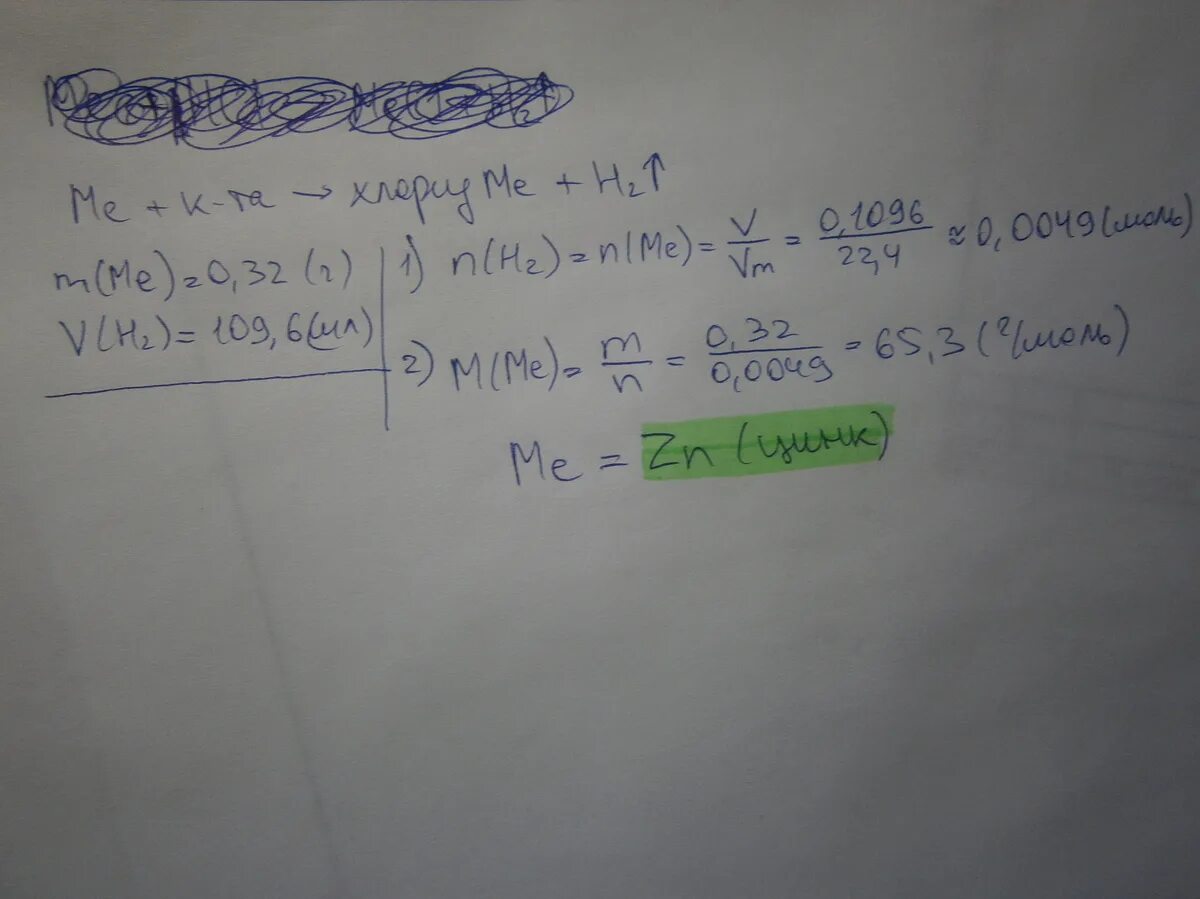 Me + к-та → хлорид Me + H₂↑
m(Me) = 0,32 (г)
V(H₂) = 109,6 (мл)
1) n(H₂) = n(Me) = V/Vm = 0,1096/22,4 ≈ 0,0049 (моль)
2) M(Me) = m/n = 0,32/0,0049 = 65,3 (г/моль)
Me = Zn (цинк)